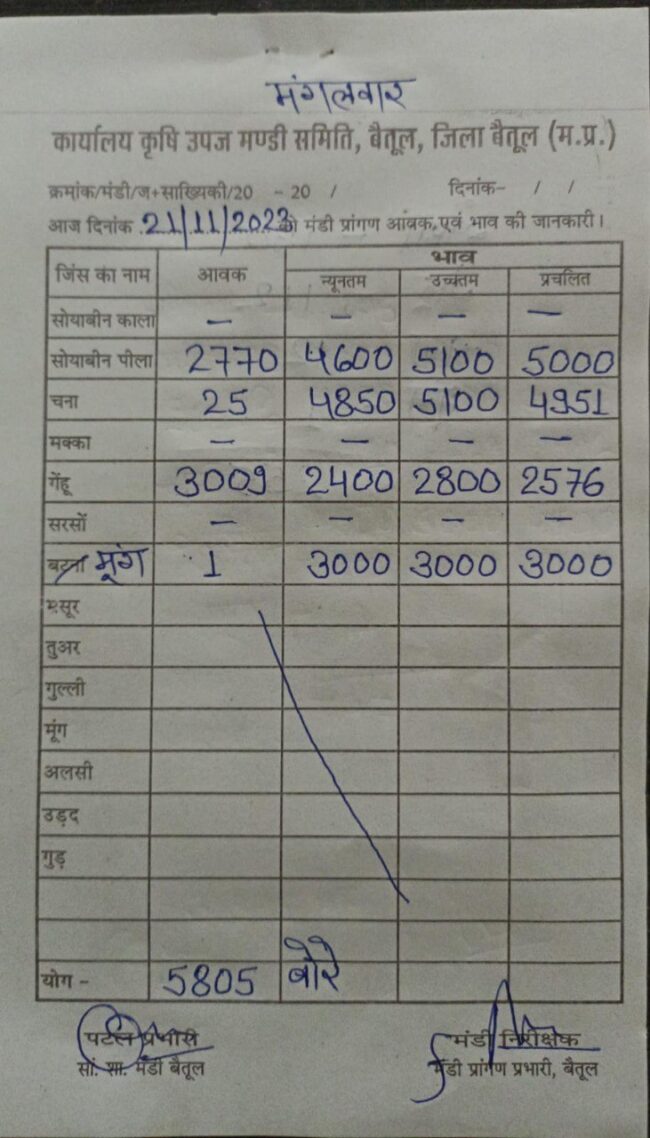 मंगलवार
कार्यालय कृषि उपज मण्डी समिति, बैतूल, जिला बैतूल (म.प्र.)
क्रमांक/मंडी/ज+साख्यिकी/20 - 20 / दिनांक- / /
आज दिनांक 21/11/2023 को मंडी प्रांगण आवक, एवं भाव की जानकारी।
जिंस का नाम आवक भाव
न्यूनतम उच्चतम प्रचलित
सोयाबीन काला - - - -
सोयाबीन पीला 2770 4600 5100 5000
चना 25 4850 5100 4951
मक्का - - - -
गेंहू 3009 2400 2800 2576
सरसों - - - -
बटना मूंग 1 3000 3000 3000
मसूर
तुअर
गुल्ली
मूंग
अलसी
उड़द
गुड़
योग - 5805 बोरे
प्रभारी मंडी निरीक्षक
सां. शा. मंडी बैतूल मंडी प्रांगण प्रभारी, बैतूल